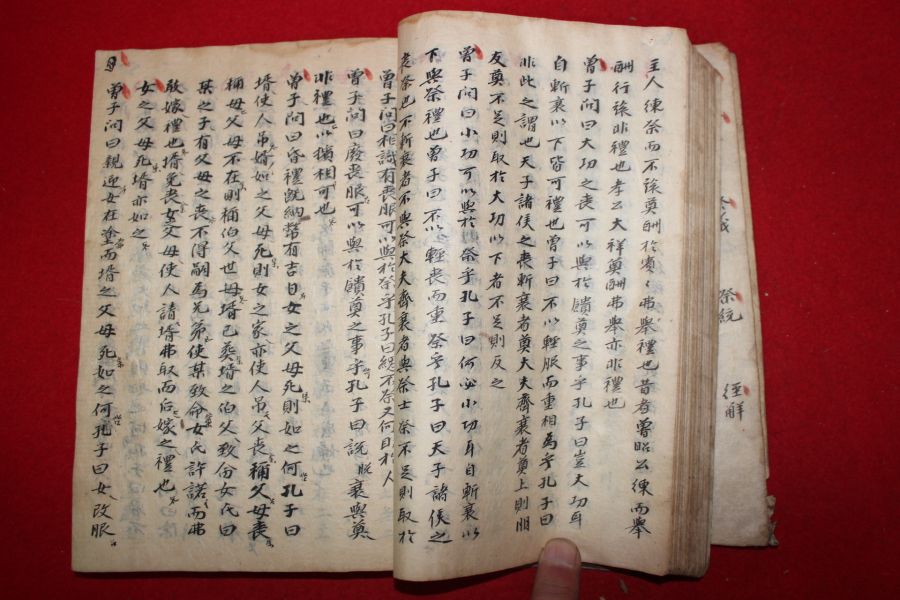 主人練祭而不旅奠酬於賓〻弗舉禮也昔者魯昭公練而舉
酬行旅非禮也孝公大祥奠酬弗舉亦非禮也
曾子問曰大功之喪可以與於饋奠之事乎孔子曰豈大功耳
自斬衰以下皆可禮也曾子曰不以輕服而重相為乎孔子曰
非此之謂也天子諸侯之喪斬衰者奠大夫齊衰者奠士則朋
友奠不足則取於大功以下者不足則反之
曾子問曰小功可以與於祭乎孔子曰何必小功耳自斬衰以
下與祭禮也曾子曰不以輕喪而重祭乎孔子曰天子諸侯之
喪祭也不斬衰者不與祭大夫齊衰者與祭士祭不足則取於
曾子問曰相識有喪服可以與於祭乎孔子曰緦不祭又何助於人
曾子問曰廢喪服可以與於饋奠之事乎孔子曰說脱衰與奠
非禮也以擯相可也
曾子問曰昏禮既納幣有吉日女之父母死則如之何孔子曰
壻使人吊婿如之父母死則女之家亦使人吊父喪稱父母喪
稱母父母不在則稱伯父世母壻已葬壻之伯父致命女氏曰
某之子有父母之喪不得嗣為兄弟使某致命女氏許諾而弗
敢嫁禮也壻免喪女父母使人請壻弗取而后嫁之禮也
女之父母死壻亦如之
曾子問曰親迎女在塗而壻之父母死如之何孔子曰女改服
祭統
經解